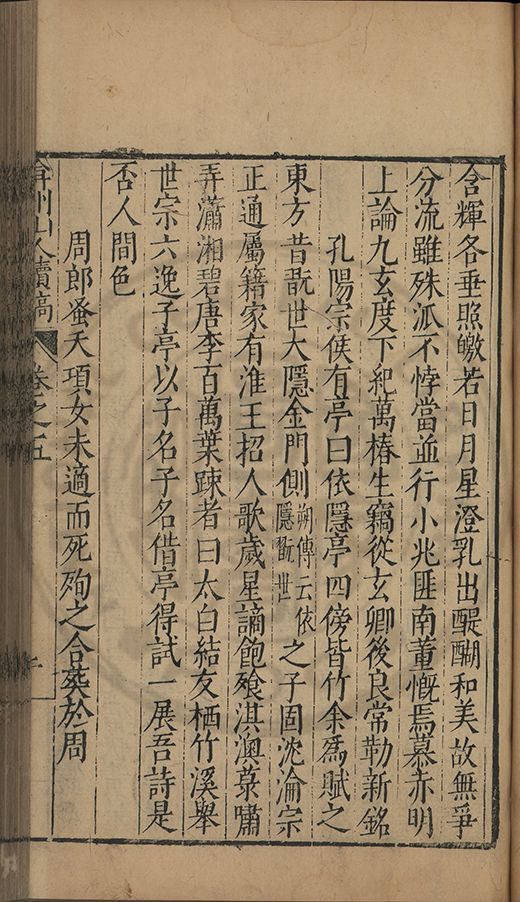 含輝各垂照皦若日月星澄乳出醍醐和美故無爭
分流雖殊派不悖當並行小兆匪南董慨焉慕赤明
上論九玄度下紀萬椿生竊從玄卿後良常勒新銘
孔陽宗侯有亭曰依隱亭四傍皆竹余為賦之
東方昔翫世大隱金門側朔傳云依隱翫世之子固沈淪宗
正通屬籍家有淮王招人歌歲星謫飽飱淇澳菉嘯
弄瀟湘碧唐李百萬葉踈者曰太白結友栖竹溪舉
世宗六逸子亭以子名子名借亭得試一展吾詩是
否人間色
周郎蚤夭項女未適而死殉之合葬於周
弇州山人續稿 卷之五